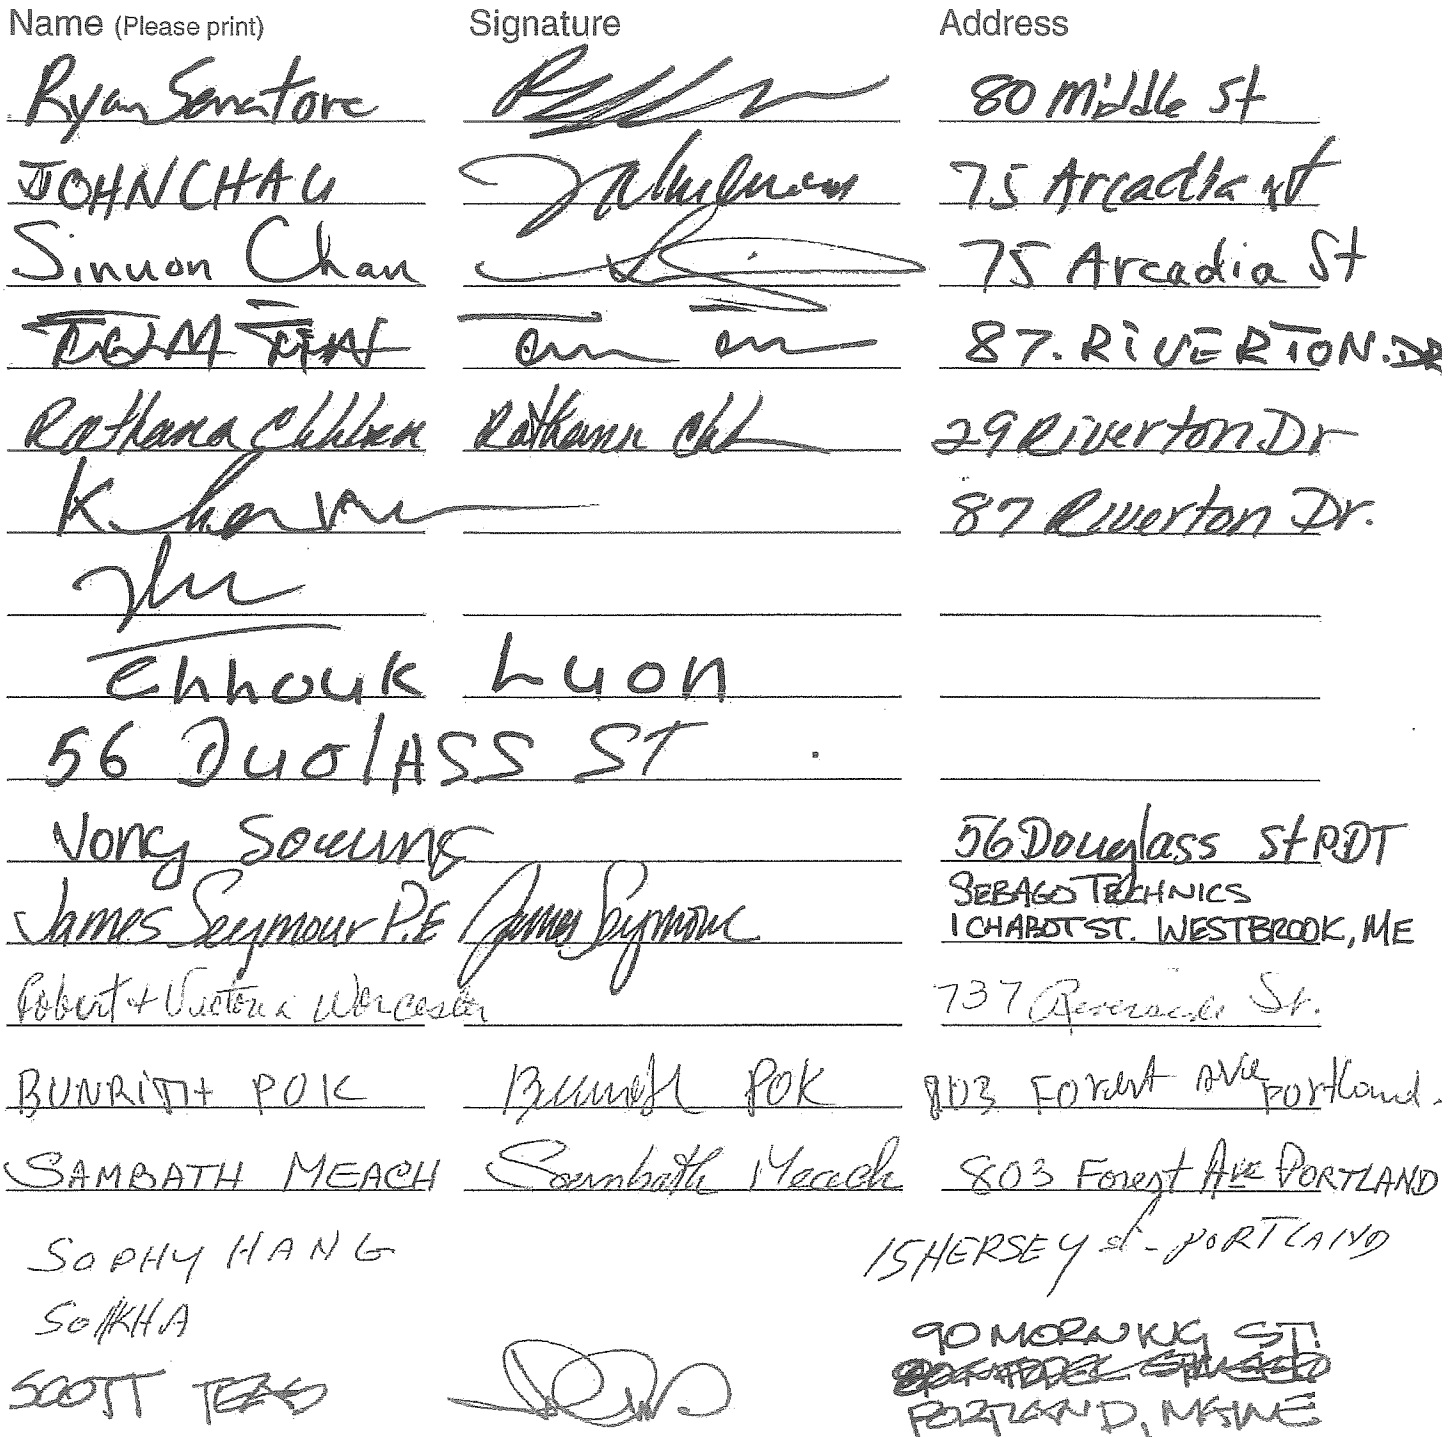 Name (Please print) Signature Address
Ryan Senatore 80 Middle St
JOHN CHAU 75 Arcadia st
Sinuon Chan 75 Arcadia St
87. RIVERTON. DR
Rathana Chhlen Rathana Chh 29 Riverton Dr
K. 87 Riverton Dr.
Chhouk Luon
56 DuolASS ST
Vong 56 Douglass St P.DT
James Seymour P.E James Seymour SEBAGO TECHNICS
1 CHABOT ST. WESTBROOK, ME
Robert + Victoria Worcester 737 Riverside St.
BUNRITH POK Bunrith POK 803 Forest Ave Portland.
SAMBATH MEACH Sambath Meach 803 Forest Ave PORTLAND
SOPHY HANG 15 HERSEY st - PORTLAND
SOKHA
90 MORNING ST.
SCOTT TEAS
PORTLAND, MAINE